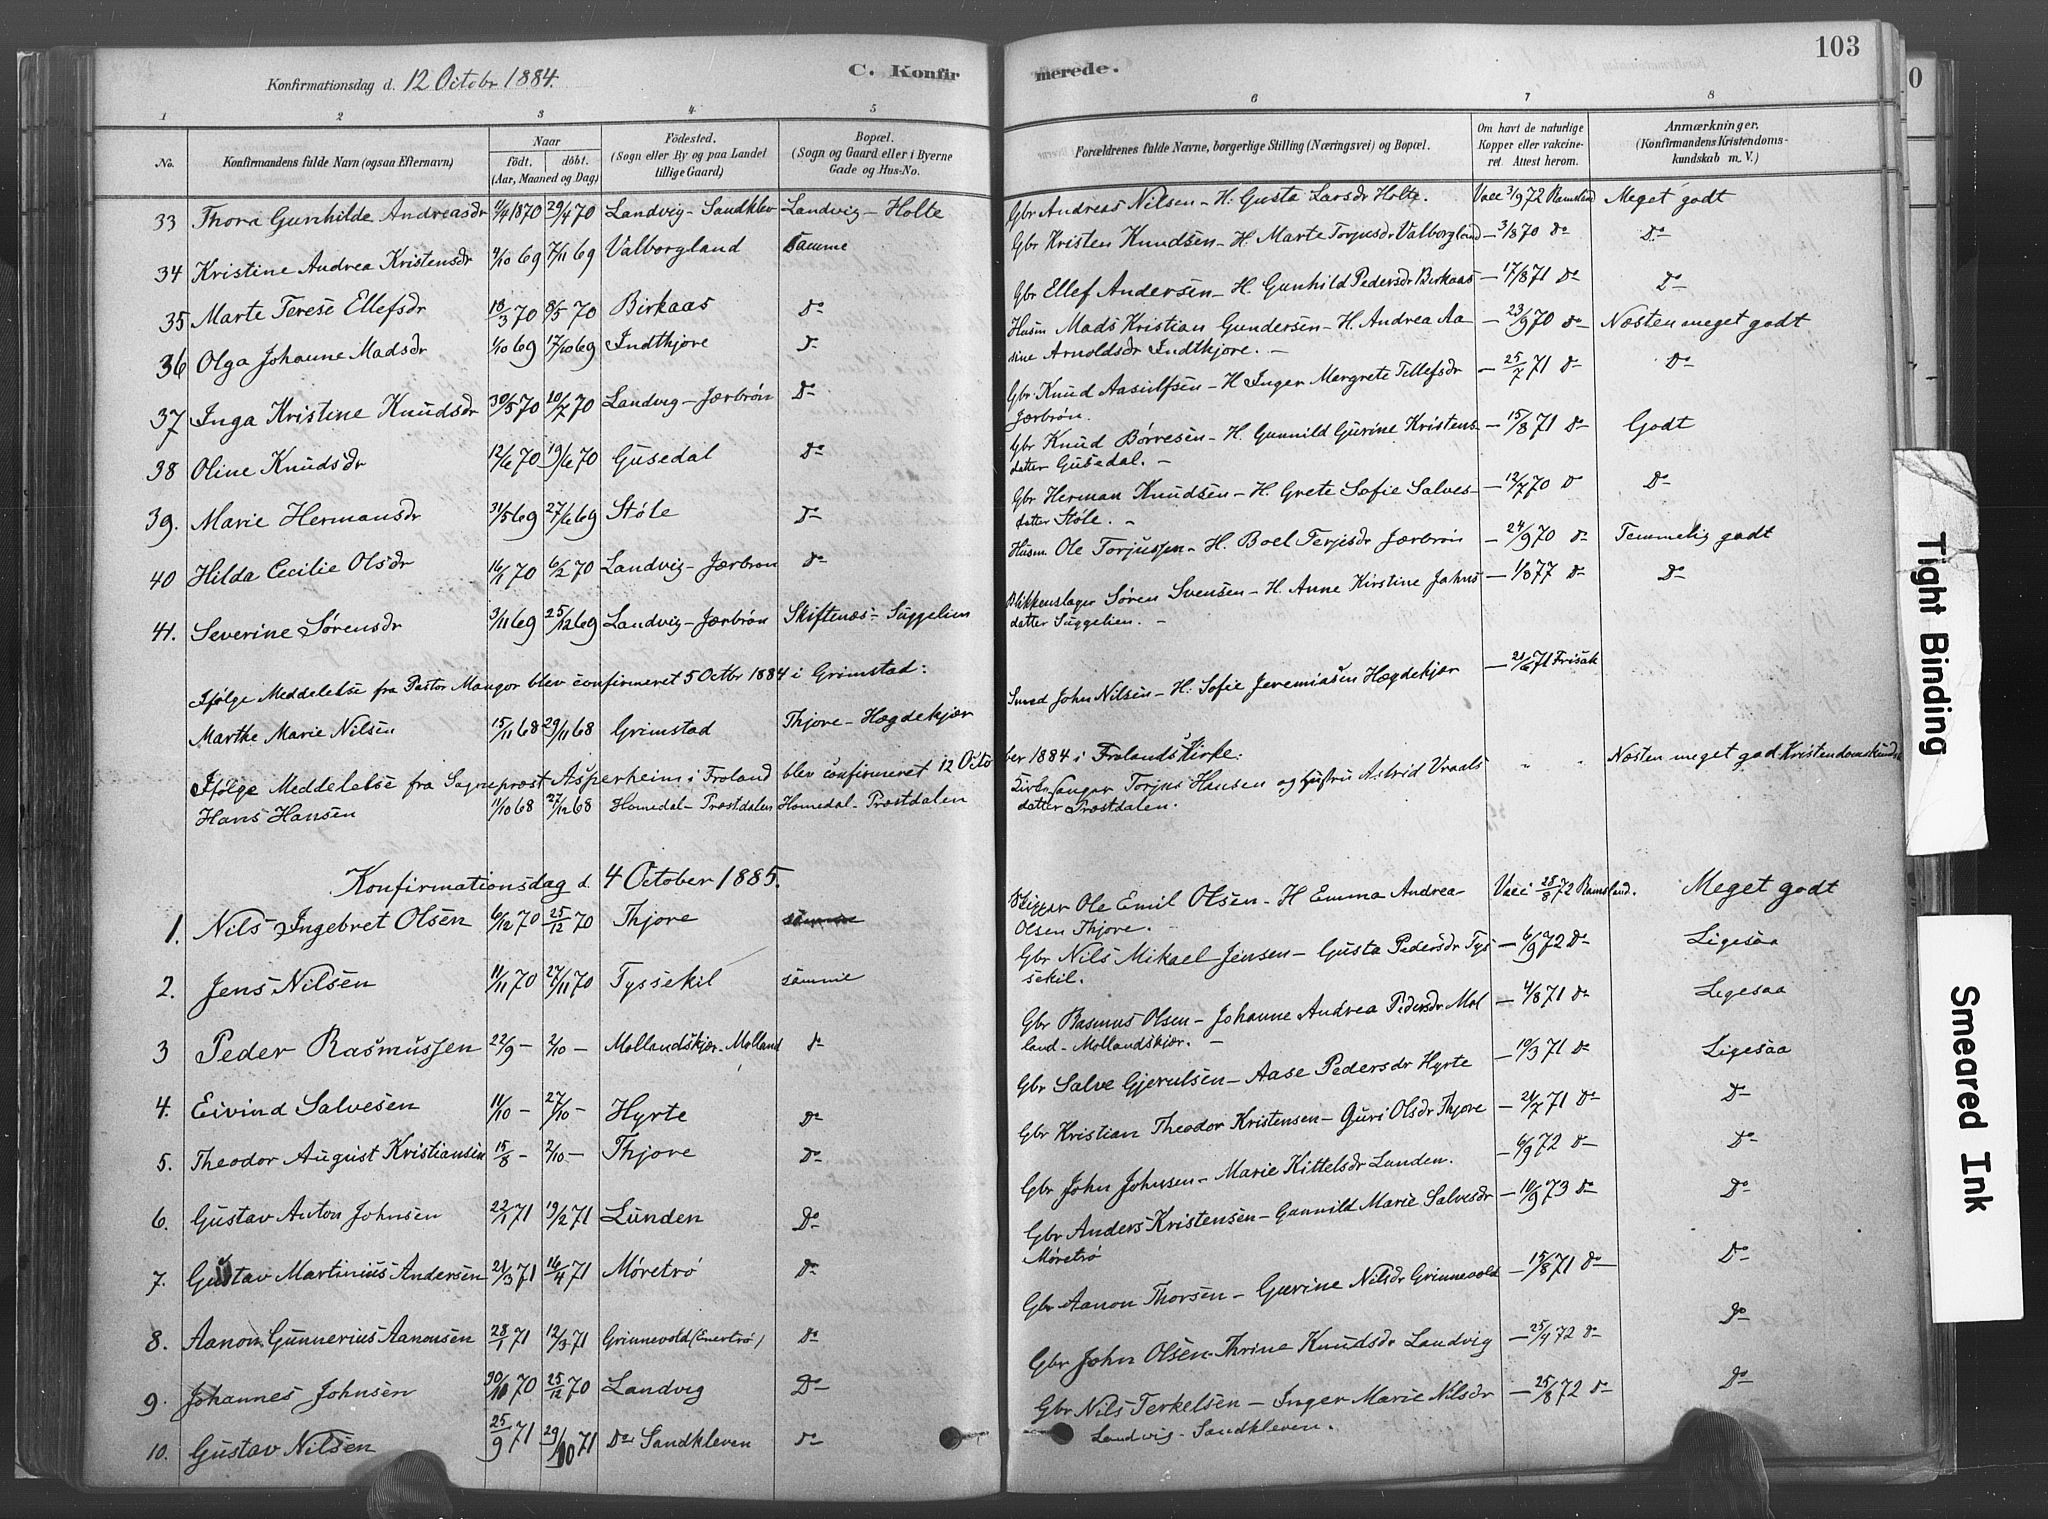 103
0
Konfirmationsdag d. 12 Octobr 1884.
C. Konfirmerede.
1 2 3 4 5 6 7 8
No.
Konfirmandens fulde Navn (ogsaa Efternavn)
Naar
Födt. döbt.
(Aar, Maaned og Dag)
Födested.
(Sogn eller By og paa Landet tillige Gaard)
Bopæl.
(Sogn og Gaard eller i Byerne Gade og Hus-No.
Forældrenes fulde Navne, borgerlige Stilling (Næringsvei) og Bopæl.
Om havt de naturlige Kopper eller vakcineret Attest herom.
Anmærkninger.
(Konfirmandens Kristendomskundskab m. V.)
33 Thora Gunhilde Andreasdr 11/4 1870 29/4 70 Landvig-Sandklev Landvig-Holte Gbr Andreas Nilsen-H. Gusta Larsdr Holte. Vacc 3/9 72 Ramsland Meget godt
34 Kristine Andrea Kristensdr 4/10 69 7/11 69 Valborgland Samme Gbr Kristen Knudsen-H. Marte Torjusdr Valborgland - 3/8 70 Do Do
35 Marte Terese Ellefsdr 18/3 70 8/5 70 Birkaas Do Gbr Ellef Andersen-H. Gunhild Pedersdr Birkaas - 17/8 71 Do Do
36 Olga Johanne Madsdr 1/10 69 17/10 69 Indtkjore Do Husm Mads Kristian Gundersen-H. Andrea Aa
sine Arnoldsdr Indtkjore. - - 23/9 70 Do Næsten meget godt
37 Inga Kristine Knudsdr 30/5 70 10/7 70 Landvig-Jærbrøn Do Gbr Knud Aasulfsen-H Inger Mergrete Tellefsdr
Jærbrøn. - 25/7 71 Do Do
38 Oline Knudsdr 12/6 70 19/6 70 Gusedal Do Gbr Knud Børresen-H. Gunnild Gurine Kristens-
datter Gusedal. - - 15/8 71 Do Godt
39. Marie Hermansdr 31/5 69 27/6 69 Støle Do Gbr Herman Knudsen-H. Grete Sofie Salves-
datter Støle. - - 12/7 70 Do Do
40 Hilda Cecilie Olsdr 16/1 70 6/2 70 Landvig-Jærbrøn Do Husm. Ole Torjussen-H. Boel Terjisdr Jærbrøn - 24/9 70 Do Temmelig godt
41. Severine Sørensdr 3/11 69 25/12 69 Landvig-Jærbrøn Skiftenæs-Suggelien Blikkenslager Søren Svensen-H. Anne Kirstine Jahns
datter Suggelien. - - 1/8 77 Do Do
Ifølge Meddelelse fra Pastor Mangor blev confirmeret 5 Octbr 1884 i Grimstad:
Marthe Marie Nilsen 15/11 68 29/11 68 Grimstad Thjore-Hægdekjær Smed John Nilsen-H. Sofie Jeremiasen Hægdekjær - 21/6 71 Frisak
Ifølge Meddelelse fra Sogneprest Asperheim i Froland blev confirmeret 12 October 1884 i Frolands Kirke:
Hans Hansen 11/10 68 27/12 68 Homedal-Præstdalen Homedal-Præstdalen Kirkesanger Torjus Hansen og Hustru Astrid Vraals
datter Præstdalen. " " Næsten meget god Kristendomskundsk
Konfirmationsdag d. 4 October 1885.
1. Nils Ingebret Olsen 6/12 70 25/12 70 Thjore samme Skipper Ole Emil Olsen-H Emma Andrea
Olsen Thjore. - Vacc 28/8 72 Ramsland. Meget godt
2. Jens Nilsen 11/11 70 27/11 70 Tyssekil samme Gbr Nils Mikael Jensen-Gusta Pedersdr Tys
sekil. - 6/9 72 Do Ligesaa
3 Peder Rasmussen 22/9 - 2/10 - Mollandskjær-Molland Do Gbr Rasmus Olsen-Johanne Andrea Pedersdr Mol
land-Mollandskjær. - - 4/8 71 Do Ligesaa
4. Eivind Salvesen 11/10 - 27/10 - Hyrte Do Gbr Salve Gjerulsen-Aase Pedersdr Hyrte - 19/3 71 Do Ligesaa
5. Theodor August Kristiansen 15/8 - 2/10 - Thjore Do Gbr Kristian Theodor Kristensen-Guri Olsdr Thjore - 21/7 71 Do Do
6. Gustav Anton Johnsen 22/1 71 19/2 71 Lunden Do Gbr John Johnsen-Marie Kittelsdr Lunden. - 6/9 72 Do Do
7. Gustav Martinius Andersen 21/3 71 16/4 71 Møretrø Do Gbr Anders Kristensen-Gunnild Marie Salvesdr
Møretrø - 10/9 73 Do Do
8. Aanon Gunnerius Aanonsen 28/1 71 12/3 71 Grinnevold (Enertrø) Do Gbr Aanon Thorsen-Gurine Nilsdr Grinnevold - 15/8 71 Do Do
9. Johannes Johnsen 30/10 70 25/12 70 Landvig Do Gbr John Olsen-Thrine Knudsdr Landvig - 25/4 72 Do Do
10. Gustav Nilsen 25/9 71 29/10 71 Do Sandkleven Do Gbr Nils Terkelsen-Inger Marie Nilsdr
Landvig-Sandkleven. - 25/8 72 Do Do
Tight Binding
Smeared Ink